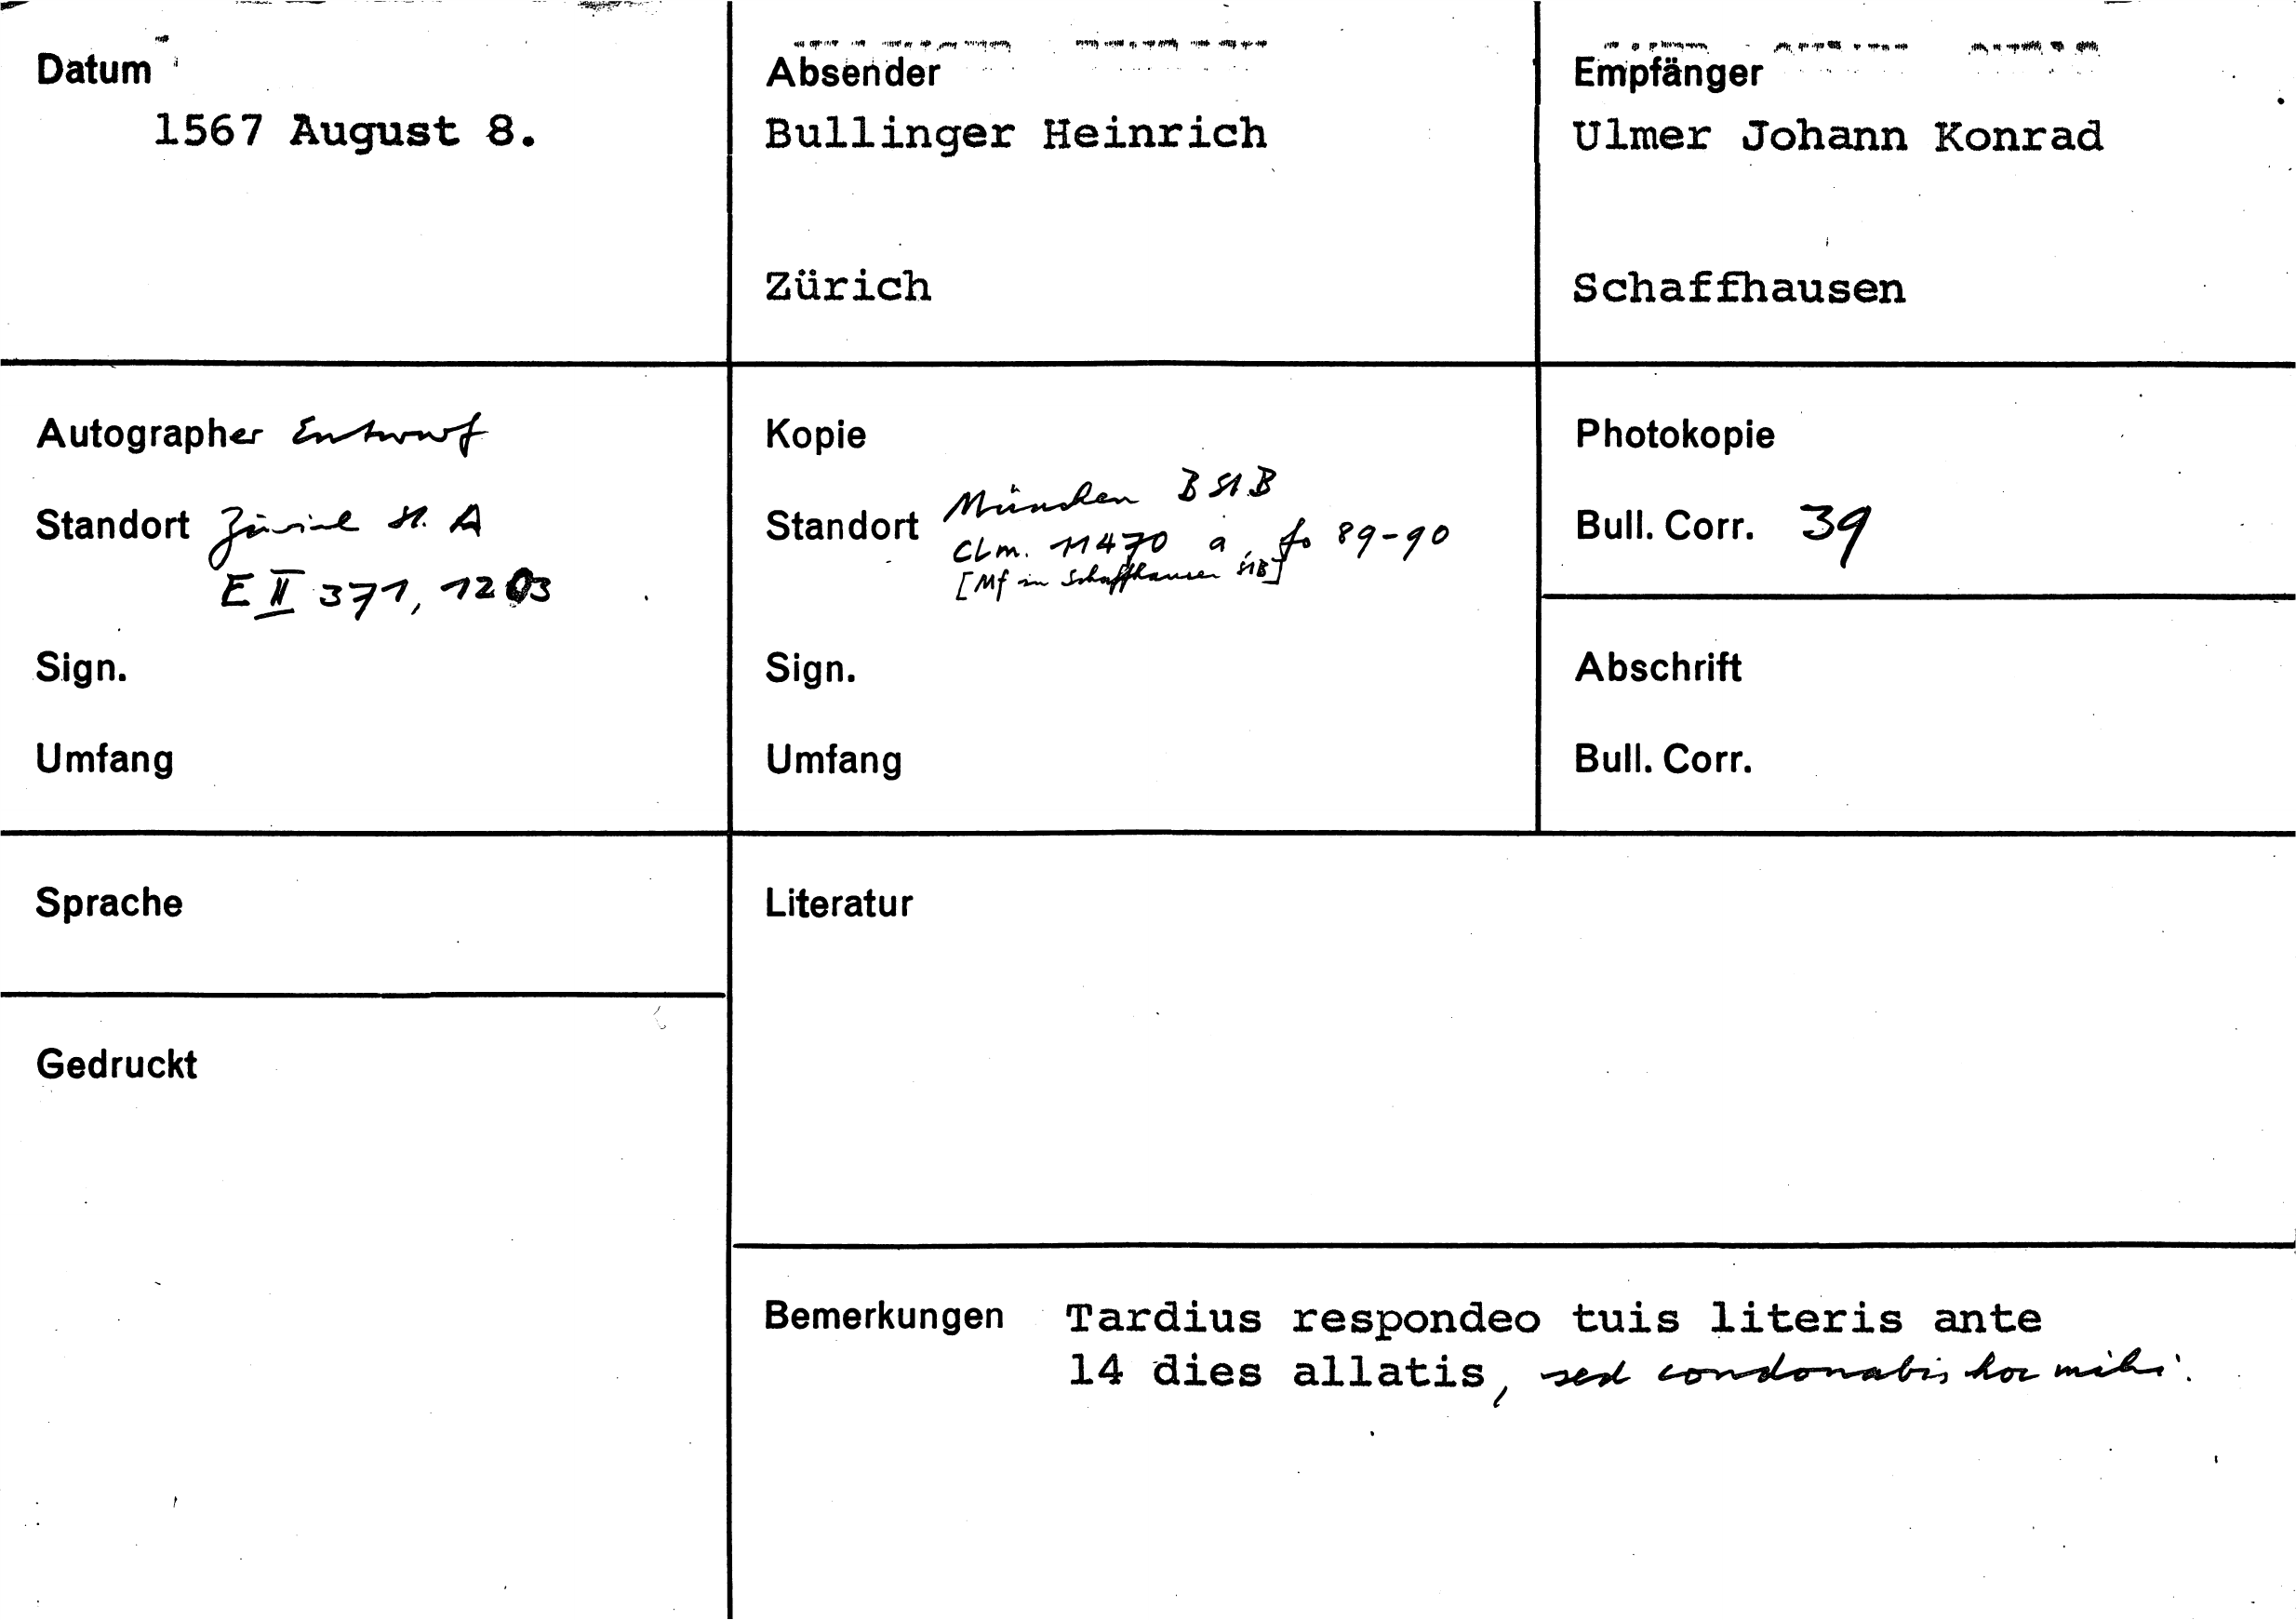 Datum
1567 August 8.
Absender
Bullinger Heinrich
Zürich
Empfänger
Ulmer Johann Konrad
Schaffhausen
Autographer Entwurf
Standort Zürich St. A
E II 371, 1203
Sign.
Umfang
Kopie
Standort München BStB
Clm. 11470 a, fo 89-90
[Mf in Schaffhausen StB]
Sign.
Umfang
Photokopie
Bull. Corr. 39
Abschrift
Bull. Corr.
Sprache
Literatur
Gedruckt
Bemerkungen Tardius respondeo tuis literis ante
14 dies allatis, sed condonabis hoc mihi.